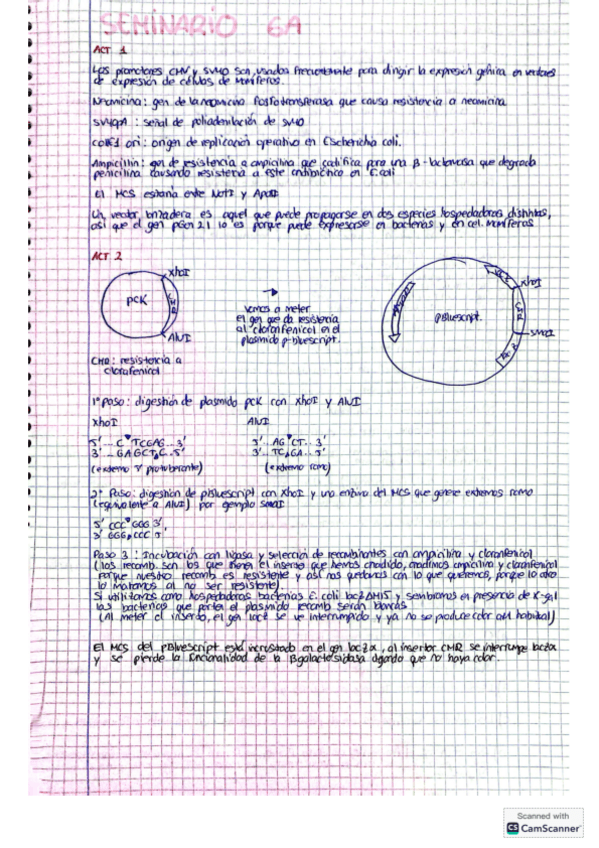 SEMINARIO 6A
ACT 1
Los promotores CMV y SV40 son usados frecuentemente para dirigir la expresión génica en vectores
de expresión de células de mamíferos.
Neomicina: gen de la neomicina fosfotransferasa que causa resistencia a neomicina
SV40pA : señal de poliadenilación de SV40
colE1 ori : origen de replicación operativo en Escherichia coli.
Ampicillin: gen de resistencia a ampicilina que codifica para una β-lactamasa que degrada
penicilina causando resistencia a este antibiótico en E.coli
El MCS estaría entre NotI y
Un vector lanzadera es aquel que puede propagarse en dos especies hospedadoras distintas,
así que el gen 2.1 lo es porque puede expresarse en bacterias y en cel. mamíferos
ACT 2
XhoI
pCK
AluI
CMR : resistencia a
cloranfenicol
→
vamos a meter
el gen que da resistencia
al cloranfenicol en el
plasmido p-bluescript.
pBluescript.
XhoI
CMR
SmaI
1º paso: digestión de plasmido pCK con XhoI y AluI
XhoI AluI
5'... C▼TCGAG...3' 5'.. AG▼CT.. 3'
3'... GAGCT▲C..5' 3'.. TC▲GA.. 5'
(extremo 5' protuberante) (extremo romo)
2º Paso: digestión de pBluescript con XhoI y una enzima del MCS que genere extremos romo
(equivalente a AluI) por ejemplo SmaI
5' CCC▼GGG 3'
3' GGG▲CCC 5'
Paso 3 : Incubación con ligasa y selección de recombinantes con ampicilina y cloranfenicol
(los recomb. son los que tienen el inserto que hemos añadido, añadimos ampicilina y cloranfenicol
porque nuestro recomb es resistente y así nos quedamos con lo que queremos, porque lo otro
lo matamos al no ser resistente)
Si utilizamos como hospedadoras bacterias E. coli lacZΔM15 y sembramos en presencia de X-gal
las bacterias que porten el plasmido recomb serán blancas
(Al meter el inserto, el gen lacZ se ve interrumpido y ya no se produce color azul habitual)
El MCS del pBluescript está incrustado en el gen lacZα, al insertar CMR se interrumpe lacZα
y se pierde la funcionalidad de la βgalactosidasa que no haya color.
Scanned with
CS CamScanner